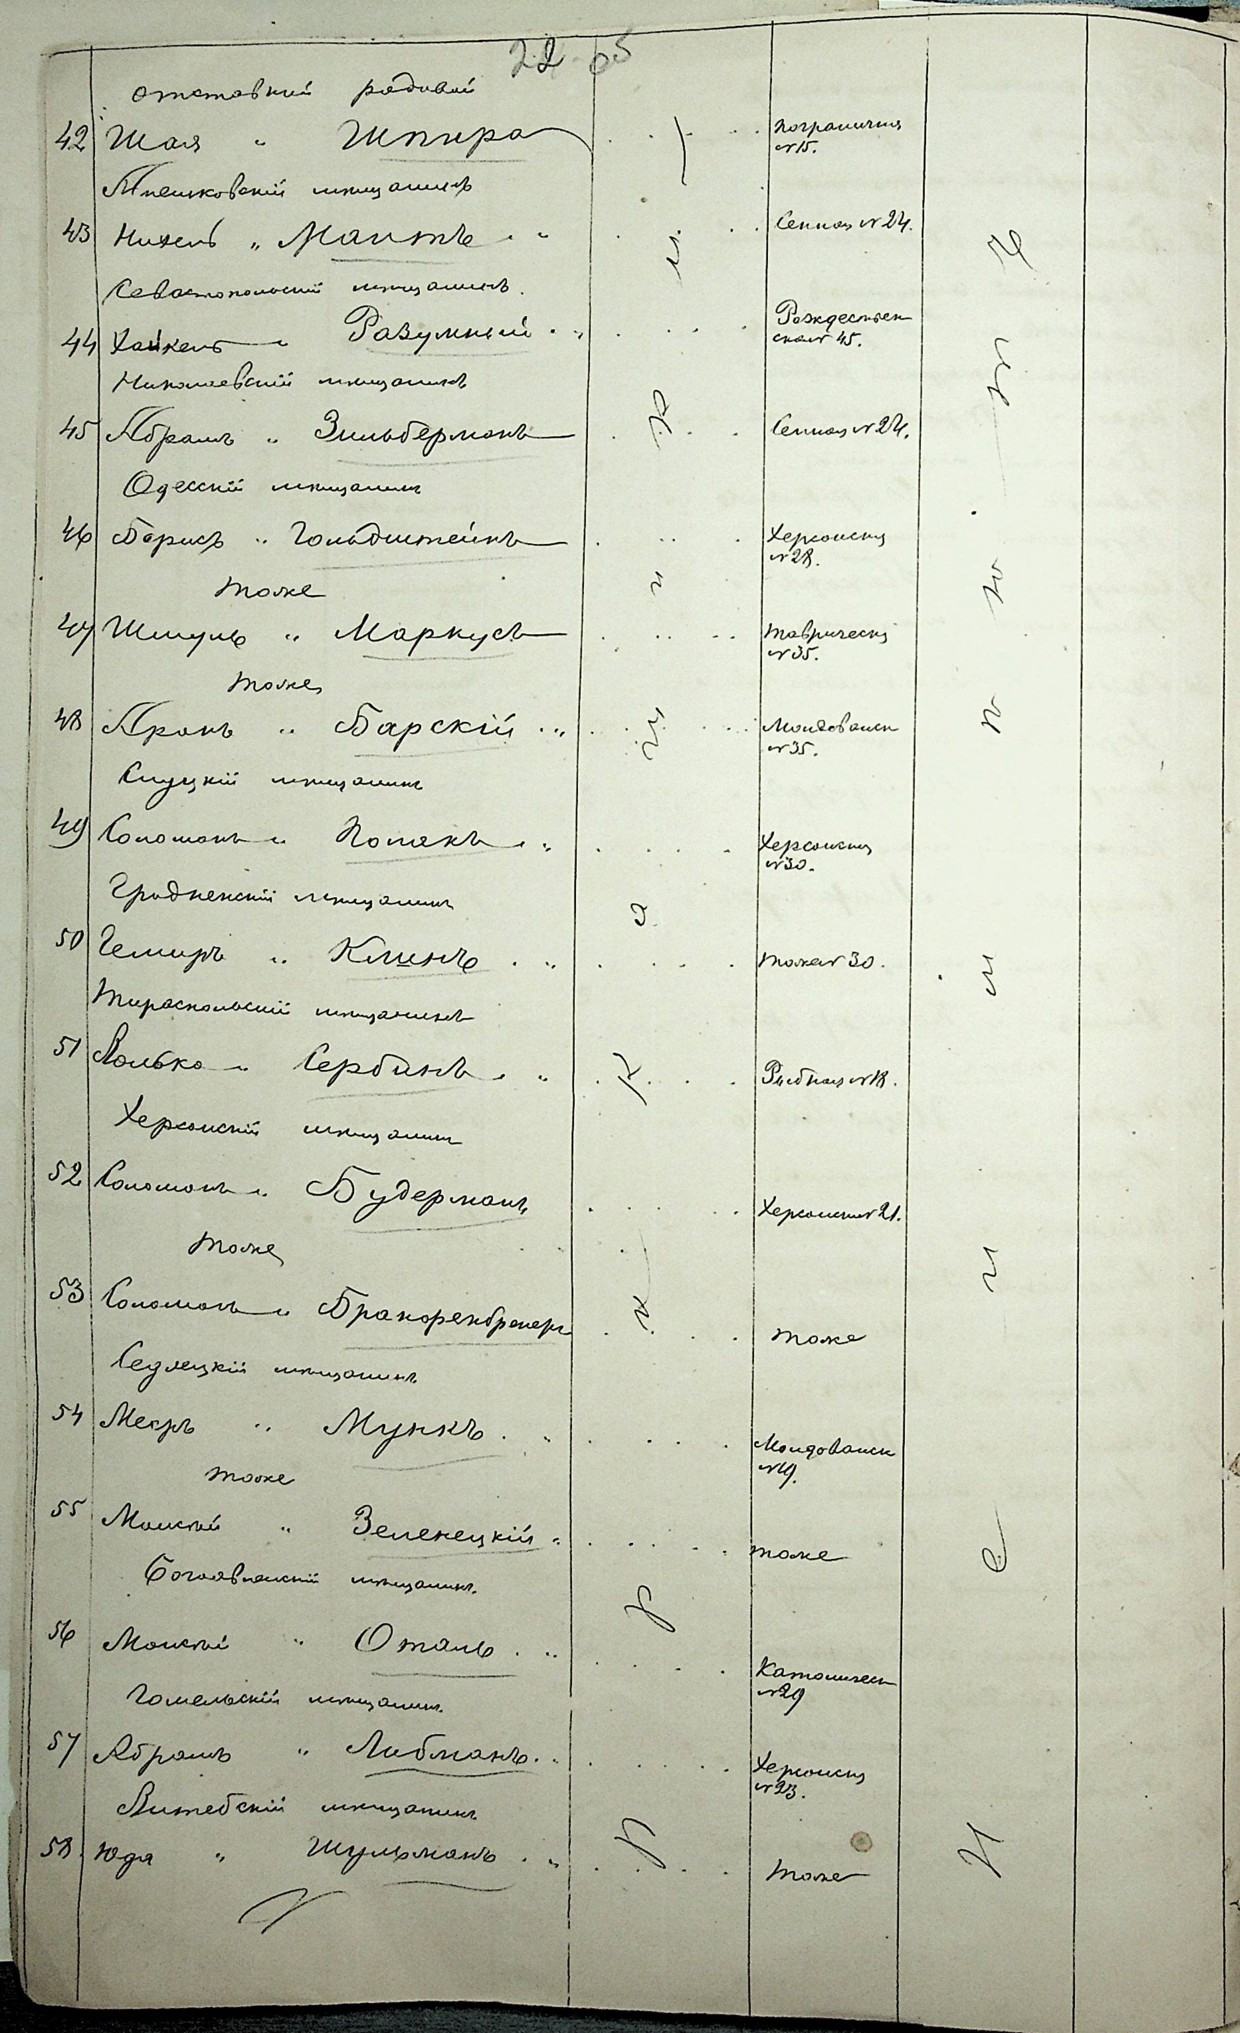 22 65
отставний рядовой
42 Шая " Шпира Пограничная
№ 15.
мещанинъ
43 " Маитъ Сенная № 24.
Севастопольскій мещанинъ.
44 Хаикель " Разумный Рождествен
ская № 45.
Николаевскій мещанинъ
45 Абрамъ " Зильберманъ Сенная № 24.
Одесскій мещанинъ
46 Борисъ " Гольдштейнъ Херсонская
№ 28.
тоже
47 Шмуль " Маркусъ Таврическая
№ 35.
тоже
48 Аронъ " Барскій Молдованск
№ 35.
Слуцкій мещанинъ
49 Соломонъ " Полякъ Херсонская
№ 30.
Гродненскій мещанинъ
50 " Клинъ тоже № 30.
Тираспольскій мещанинъ
51 Волько " Сербинъ Рыбная № 18.
Херсонскій мещанинъ
52 Соломонъ " Будерманъ Херсонская № 21.
тоже
53 Соломонъ " тоже
Седлецкій мещанинъ
54 " Мункъ Молдованск
№ 19.
тоже
55 Моисей " Зеленецкій тоже
Богоявленскій мещанинъ.
56 Моисей " Оталь Католическ
№ 29
Гомельскій мещанинъ.
57 Абрамъ " Либманъ Херсонская
№ 23.
Витебскій мещанинъ
58. Юдя " Шульманъ тоже